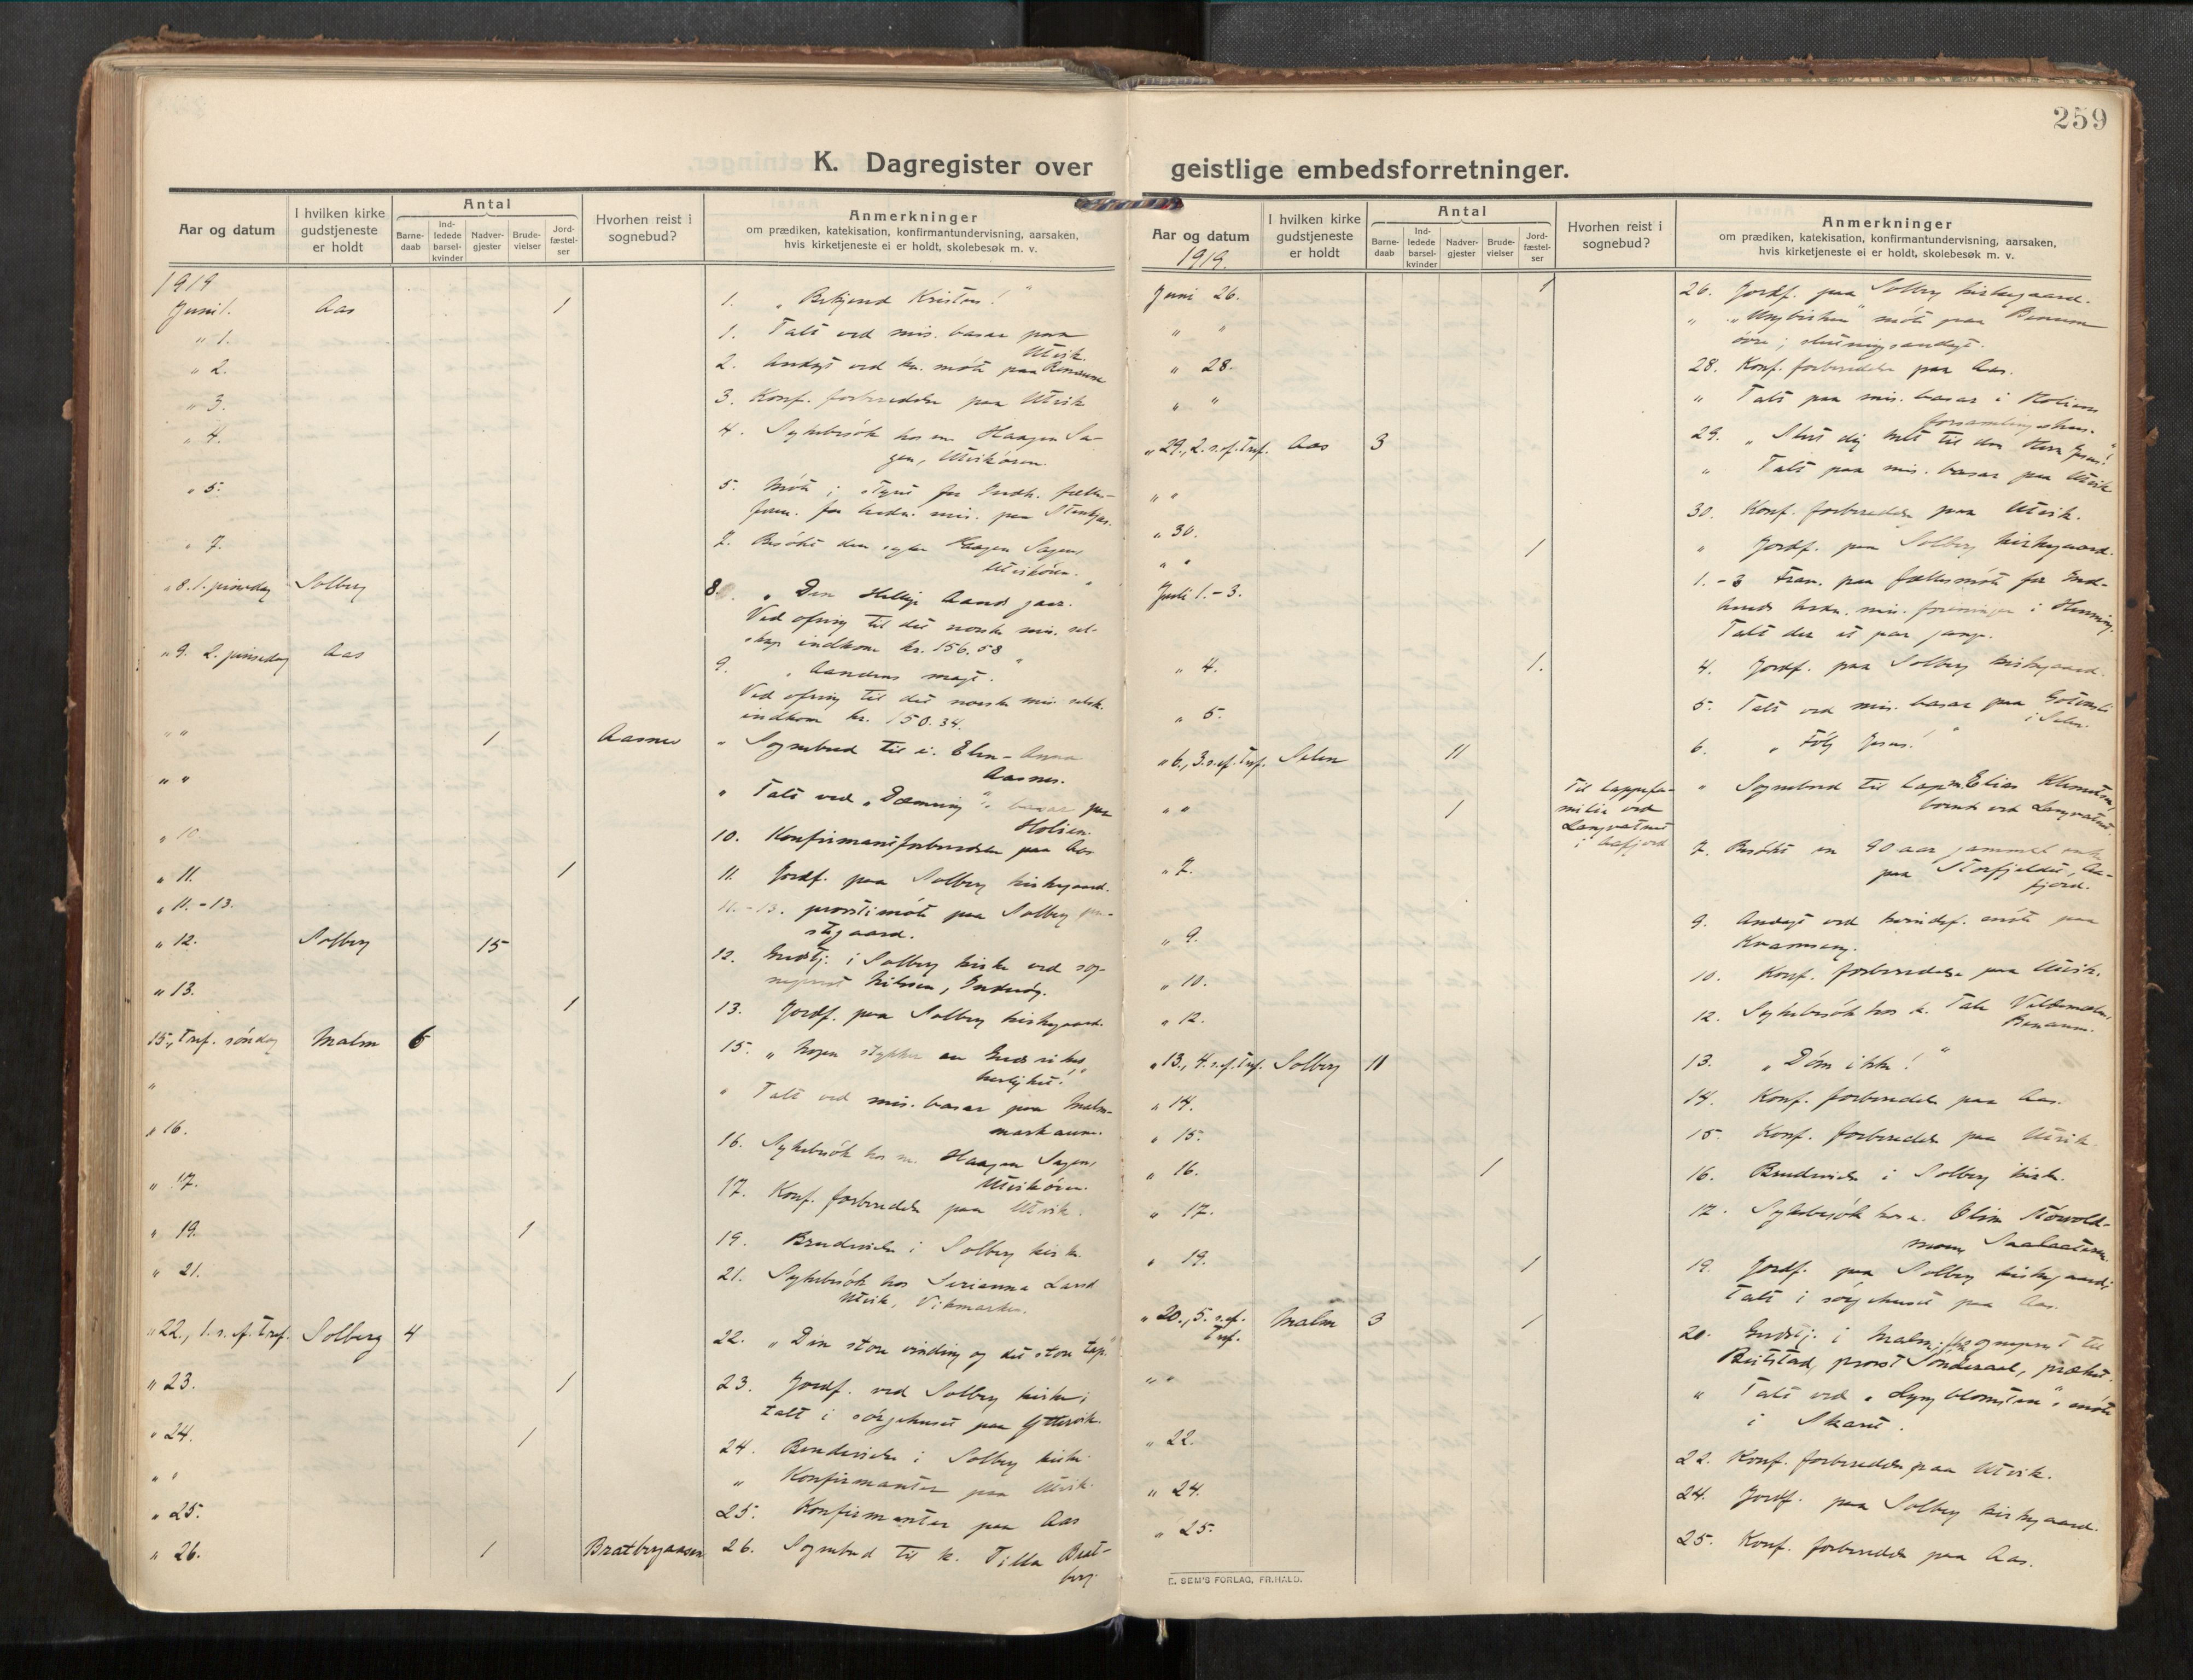 259
K. Dagregister over
Aar og datum
I hvilken kirke
gudstjeneste
er holdt
Antal
Barne-
daab
Ind-
ledede
barsel-
kvinder
Nadver-
gjester
Brude-
vielser
Jord-
fæstel-
ser
Hvorhen reist i
sognebud?
Anmerkninger
om prædiken, katekisation, konfirmantundervisning, aarsaken,
hvis kirketjeneste ei er holdt, skolebesøk m. v.
1919
Juni 1. Aas 1 1. „Bekjend Kristus!"
" 1. 1. Talt ved mis. basar paa
Utvik.
" 2. 2. Andagt ved kv. møte paa
" 3. 3. Konf. forberedelse paa Utvik
" 4. 4. Sykebesøk hos em. Haagen Sa-
gen, Utvikören.
" 5. 5. Møte i styret for Indh. fælles-
foren. for hedn. mis. paa Stenkjær.
" 7. 7. Besøkt den syke Haagen Sagen,
Utvikören.
" 8. 1. pinsedag Solberg 8. „Den Hellige Aands gave."
Ved ofring til det norske mis. sel-
skap indkom kr. 156.58
" 9. 2. pinsedag Aas 9. „Aandens magt."
Ved ofring til det norske mis. selsk.
indkom kr. 150.34.
" " 1 Aasnes " Sognebud til i. Elen-Anna
Aasnes.
" " " Talt ved „Dæmring"s basar paa
Holien.
" 10. 10. Konfirmantforberedelse paa Aas
" 11. 1 11. Jordf. paa Solberg kirkegaard.
" 11.-13. 11.-13. prostimøte paa Solberg pre-
stegaard.
" 12. Solberg 15 12. Gudstj. i Solberg kirke ved sog-
neprest Nilssen, Inderøy.
" 13. 1 13. Jordf. paa Solberg kirkegaard.
15., Tref. søndag Malm 6 15. „Nogen stykker av Guds rikes
herlighet!"
" " Talt ved mis. basar paa Malm-
marka
" 16. 16. Sykebesøk hos m. Haagen Sagen,
Utvikören.
" 17. 17. Konf. forberedelse paa Utvik.
" 19. 1 19. Brudevielse i Solberg kirke.
" 21. 21. Sykebesøk hos Serianna Lund
Utvik, Vikmarken.
" 22., 1. s. ef. Tref. Solberg 4 22. „Den store vinding og det store tap."
" 23. 1 23. Jordf. ved Solberg kirke;
talt i sørgehuset paa Yttervik.
" 24. 1 24. Brudevielse i Solberg kirke.
" " " Konfirmanter paa Utvik.
" 25. 25. Konfirmanter paa Aas
" 26. 1 Bratbergaasen 26. Sognebud til k. Tilla Brat-
berg.
geistlige embedsforretninger.
Aar og datum
I hvilken kirke
gudstjeneste
er holdt
Antal
Barne-
daab
Ind-
ledede
barsel-
kvinder
Nadver-
gjester
Brude-
vielser
Jord-
fæstel-
ser
Hvorhen reist i
sognebud?
Anmerkninger
om prædiken, katekisation, konfirmantundervisning, aarsaken,
hvis kirketjeneste ei er holdt, skolebesøk m. v.
1919.
Juni 26. 1 26. Jordf. paa Solberg kirkegaard.
" " " møte paa Benum
øvre; slutningsandagt.
" 28. 28. Konf. forberedelse paa Aas.
" " " Talt paa mis. basar i Holien
forsamlingshus.
" 29., 2. s. ef. Tref. Aas 3 29. „Slut dig helt til den Herre Jesus!"
" " " Talt paa mis. basar paa Utvik
" 30. 30. Konf. forberedelse paa Utvik.
" " 1 " Jordf. paa Solberg kirkegaard.
Juli 1.-3. 1.-3 paa fællesmøte for Ind-
hreds hedn. mis. foreninger i Henning.
Talt der et par gange.
" 4. 1. 4. Jordf. paa Solberg kirkegaard.
" 5. 5. Talt ved mis. basar paa
i Selen.
" 6., 3. s. ef. Tref. Selen 11 6. „Følg Jesus!"
" " 1 Til lappefa-
milie ved
Langvatnet
i Aafjord " Sognebud til lapm. Elias Klemetsen,
boende ved Langvatnet
" 7. 7. Besøkt en 90 aar gammel enke
paa Storfjeldet, Aa-
fjord.
" 9. 9. Andagt ved kvindef. møte paa
Kvamseng.
" 10. 10. Konf. forberedelse paa Utvik.
" 12. 12. Sykebesøk hos k.
Benaun.
" 13., 4. s. ef. Tref. Solberg 11 13. „Døm ikke!"
" 14. 14. Konf. forberedelse paa Aas.
" 15. 15. Konf. forberedelse paa Utvik.
" 16. 1 16. Brudevielse i Solberg kirke.
" 17. 17. Sykebesøk hos e.
" 19. 1 19. Jordf. paa Solberg kirkegaard;
talt i sørgehuset paa Aas.
" 20., 5. s. ef.
Tref. Malm 3 1 20. Gudstj. i Malm; sogneprest til
Beitstad, provst Sønderaal, præket.
" " " Talt ved „Lyngblomsten"s møte
i Skaret.
" 22. 22. Konf. forberedelse paa Utvik.
" 24. 24. Jordf. paa Solberg kirkegaard.
" 25. 25. Konf. forberedelse paa Aas.
E. SEM'S FORLAG, FR.HALD.